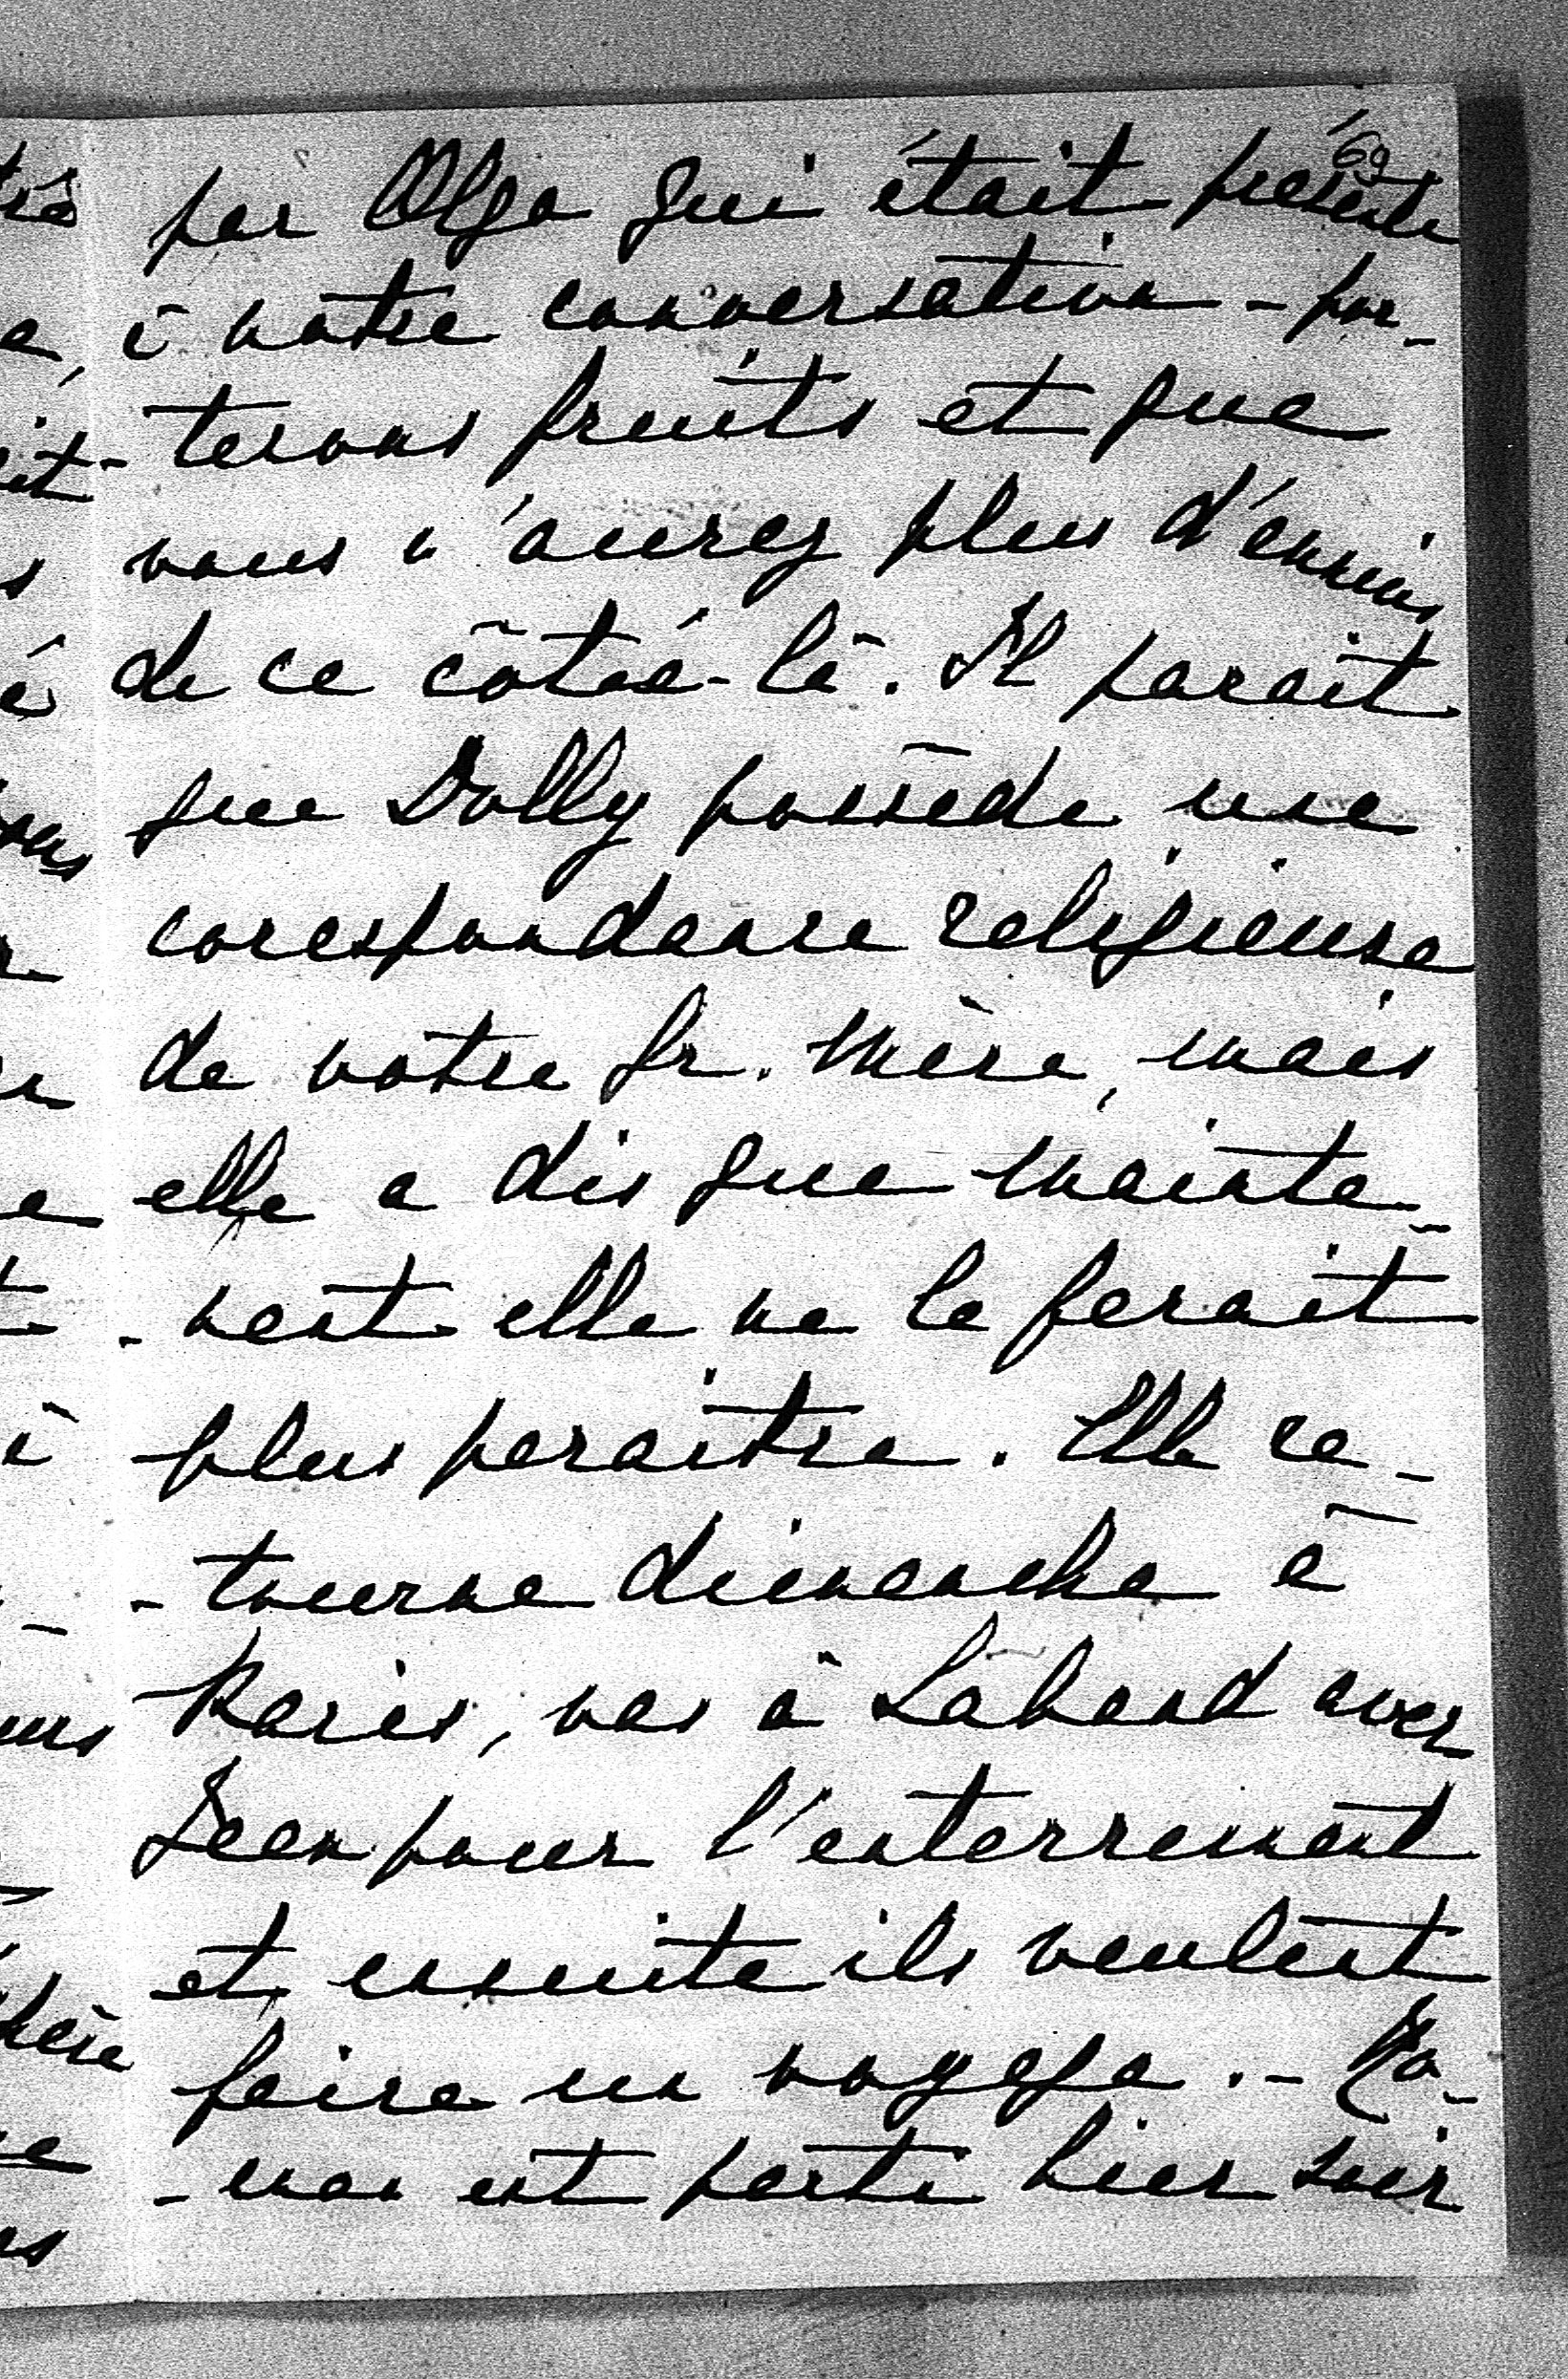 69
par Olga qui était présente
à notre conversation - por-
-terons fruits et que
vous n'aurez plus d'ennuis
de ce côtéé-là. Il parait
que Dolly possède une
corespondance religieuse
de votre gr. Mère, mais
elle a dis que mainte-
-nent elle ne le ferait
plus paraitre. Elle re-
-tourne dimanche à
Paris, vas à avec
pour l'enterrement
et ensuite ils veulent
faire un voyage. -
est parti hier soir